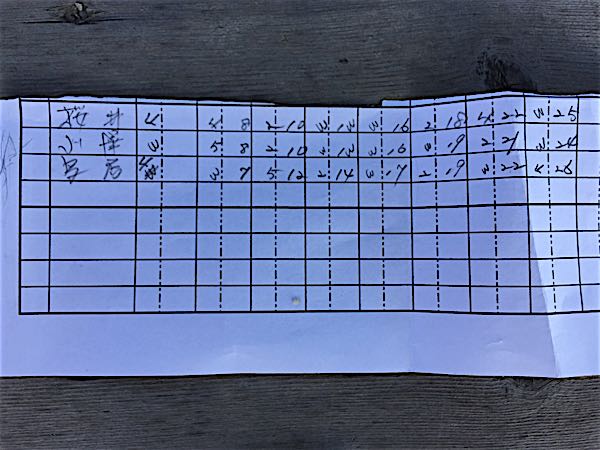 桜井 4 4 8 2 10 3 13 3 16 2 18 4 22 3 25
小 3 5 8 2 10 3 13 3 16 3 19 2 21 3 24
4 3 7 5 12 2 14 3 17 2 19 3 22 4 26